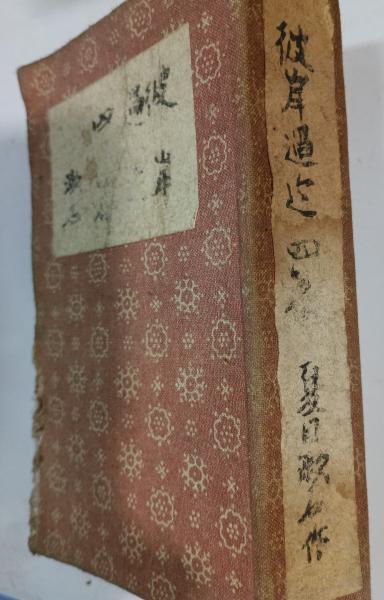 彼岸
過迄
四篇
漱石
彼岸過迄 四篇 夏目漱石作